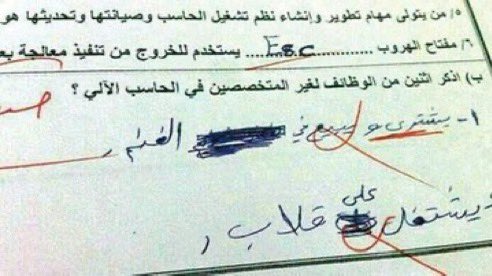 ٥/ من يتولى مهام تطوير وإنشاء نظم تشغيل الحاسب وصيانتها وتحديثها هو
٦/ مفتاح الهروب ....Esc.... يستخدم للخروج من تنفيذ معالجة
ب) اذكر اثنين من الوظائف لغير المتخصصين في الحاسب الآلي ؟
١- يشتري و يبيع في الغنم
يشتغل على قلاب